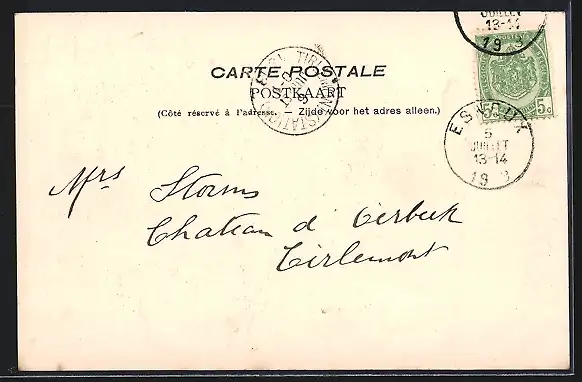 JUILLET
13-14
19 3
CARTE POSTALE
POSTKAART
(Côté réservé à l'adresse. — Zijde voor het adres alleen.)
5c
ESNEUX
5
JUILLET
13-14
19 3
Mrs Storms
Chateau d'Oirbeek
Tirlemont